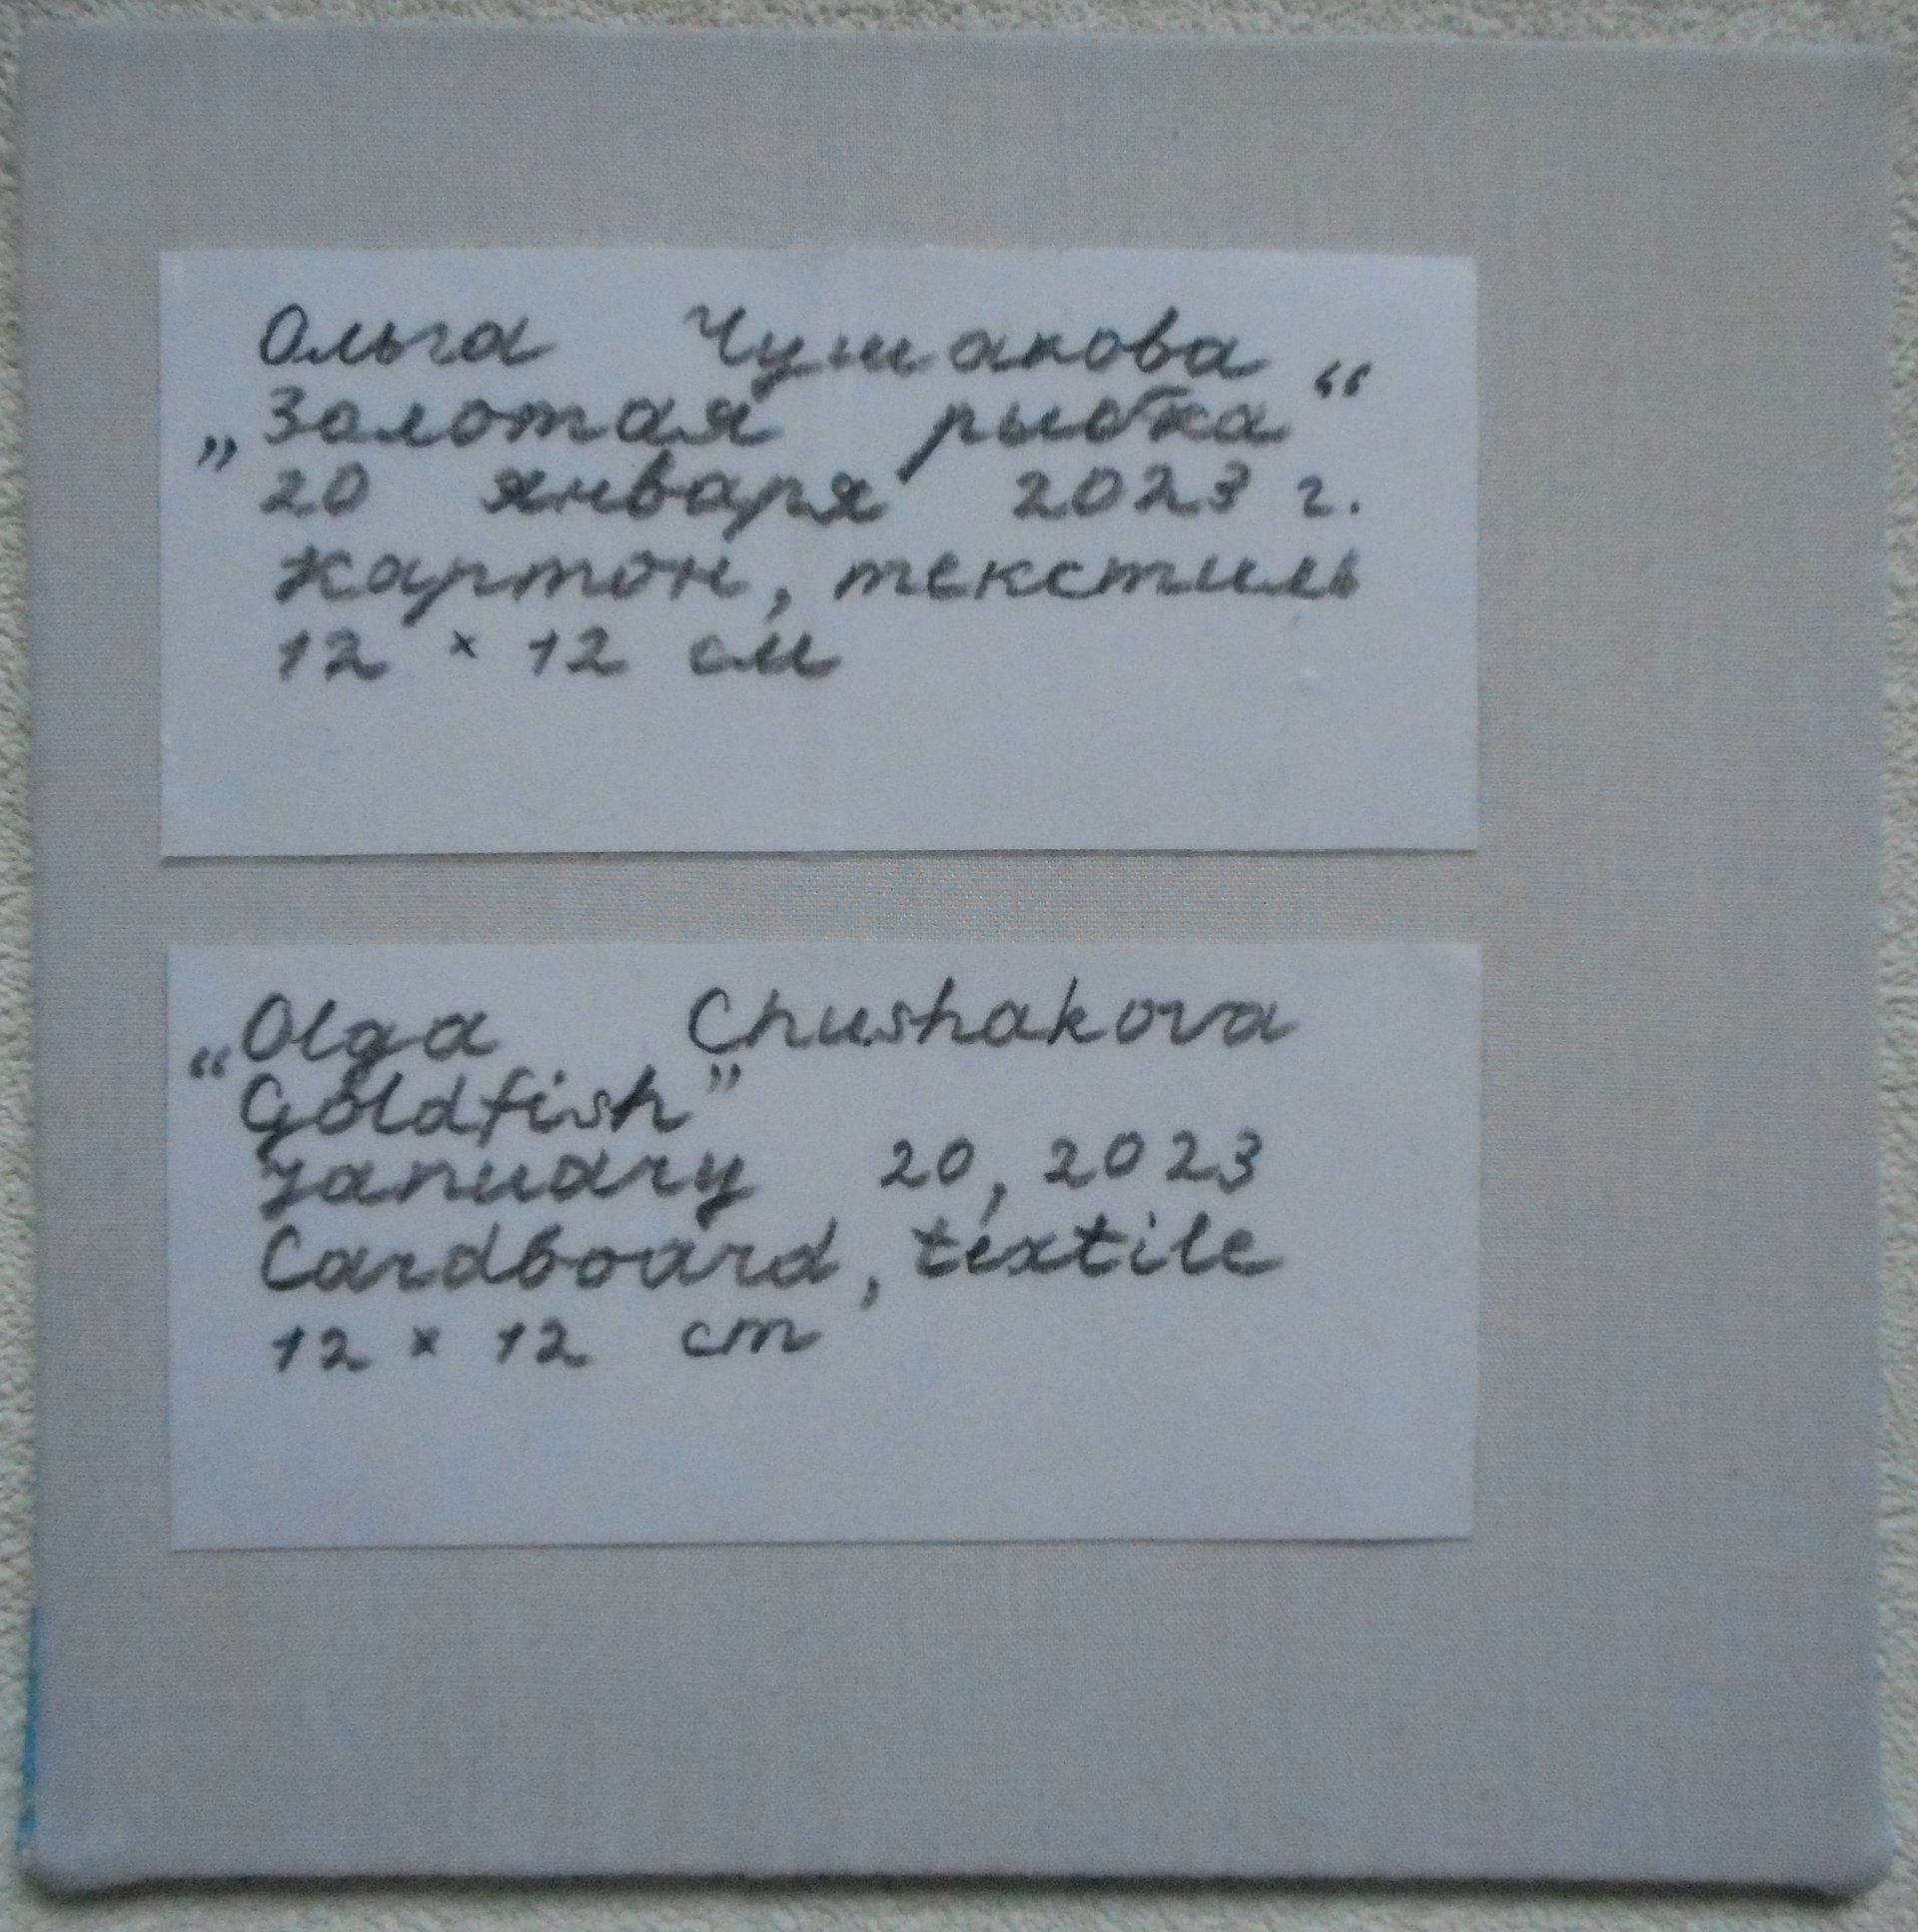 Ольга Чушакова
„Золотая рыбка“
20 января 2023 г.
Картон, текстиль
12 × 12 см
Olga Chushakova
“Goldfish”
January 20, 2023
Cardboard, textile
12 × 12 cm